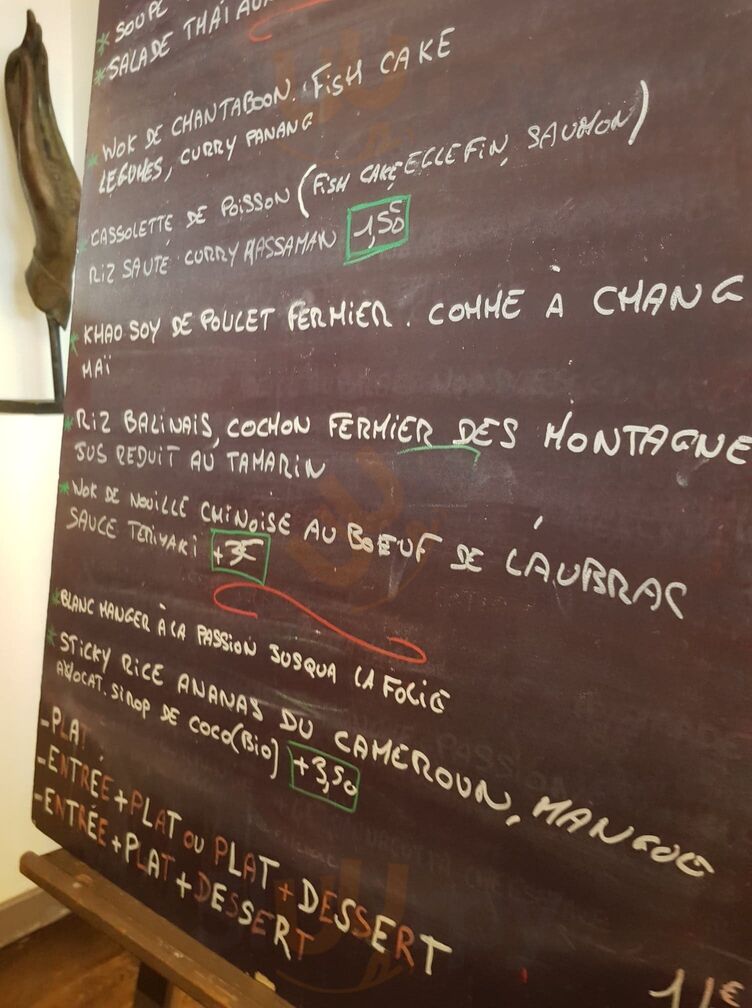 * SOUPE
* SALADE THAÏ AU
* WOK DE CHANTABOON. FISH CAKE
LEGUMES, CURRY PANANG
CASSOLETTE DE POISSON (FISH CAKE, EGLEFIN, SAUMON)
RIZ SAUTÉ CURRY MASSAMAN 1,50€
* KHAO SOY DE POULET FERMIER. COMME À CHANG
MAÏ
* RIZ BALINAIS, COCHON FERMIER DES MONTAGNE
JUS REDUIT AU TAMARIN
* WOK DE NOUILLE CHINOISE AU BOEUF DE L'AUBRAC
SAUCE TERIYAKI +3€
* BLANC MANGER À LA PASSION JUSQUA LA FOLIE
* STICKY RICE ANANAS DU CAMEROUN, MANGUE
AVOCAT. SIROP DE COCO (BIO) +3,50
- PLAT.
- ENTRÉE + PLAT OU PLAT + DESSERT
- ENTRÉE + PLAT + DESSERT